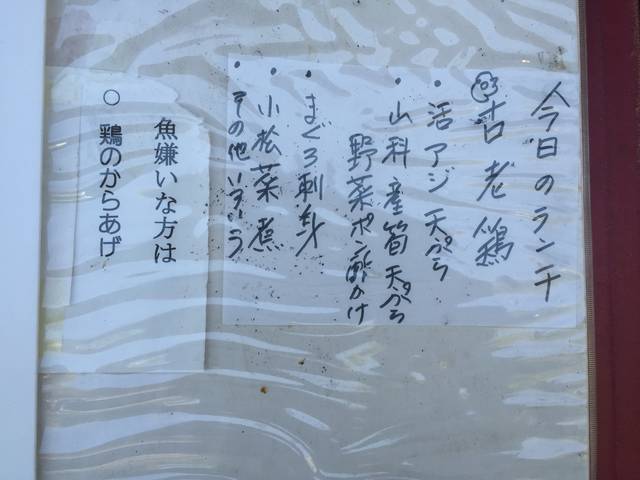 今日のランチ
古老鶏
・活アジ天ぷら
・山科産筍天ぷら
野菜ポン酢かけ
・まぐろ刺身
・小松菜煮
・その他いろいろ
魚嫌いな方は
○ 鶏のからあげ